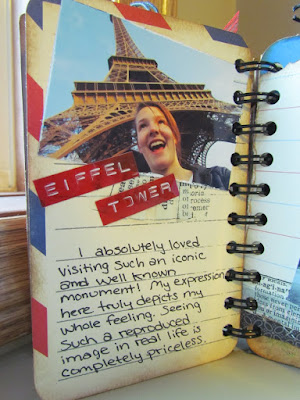 EIFFEL
TOWER
I absolutely loved
visiting such an iconic
and well known
monument! My expression
here truly depicts my
whole feeling. Seeing
such a reproduced
image in real life is
completely priceless.